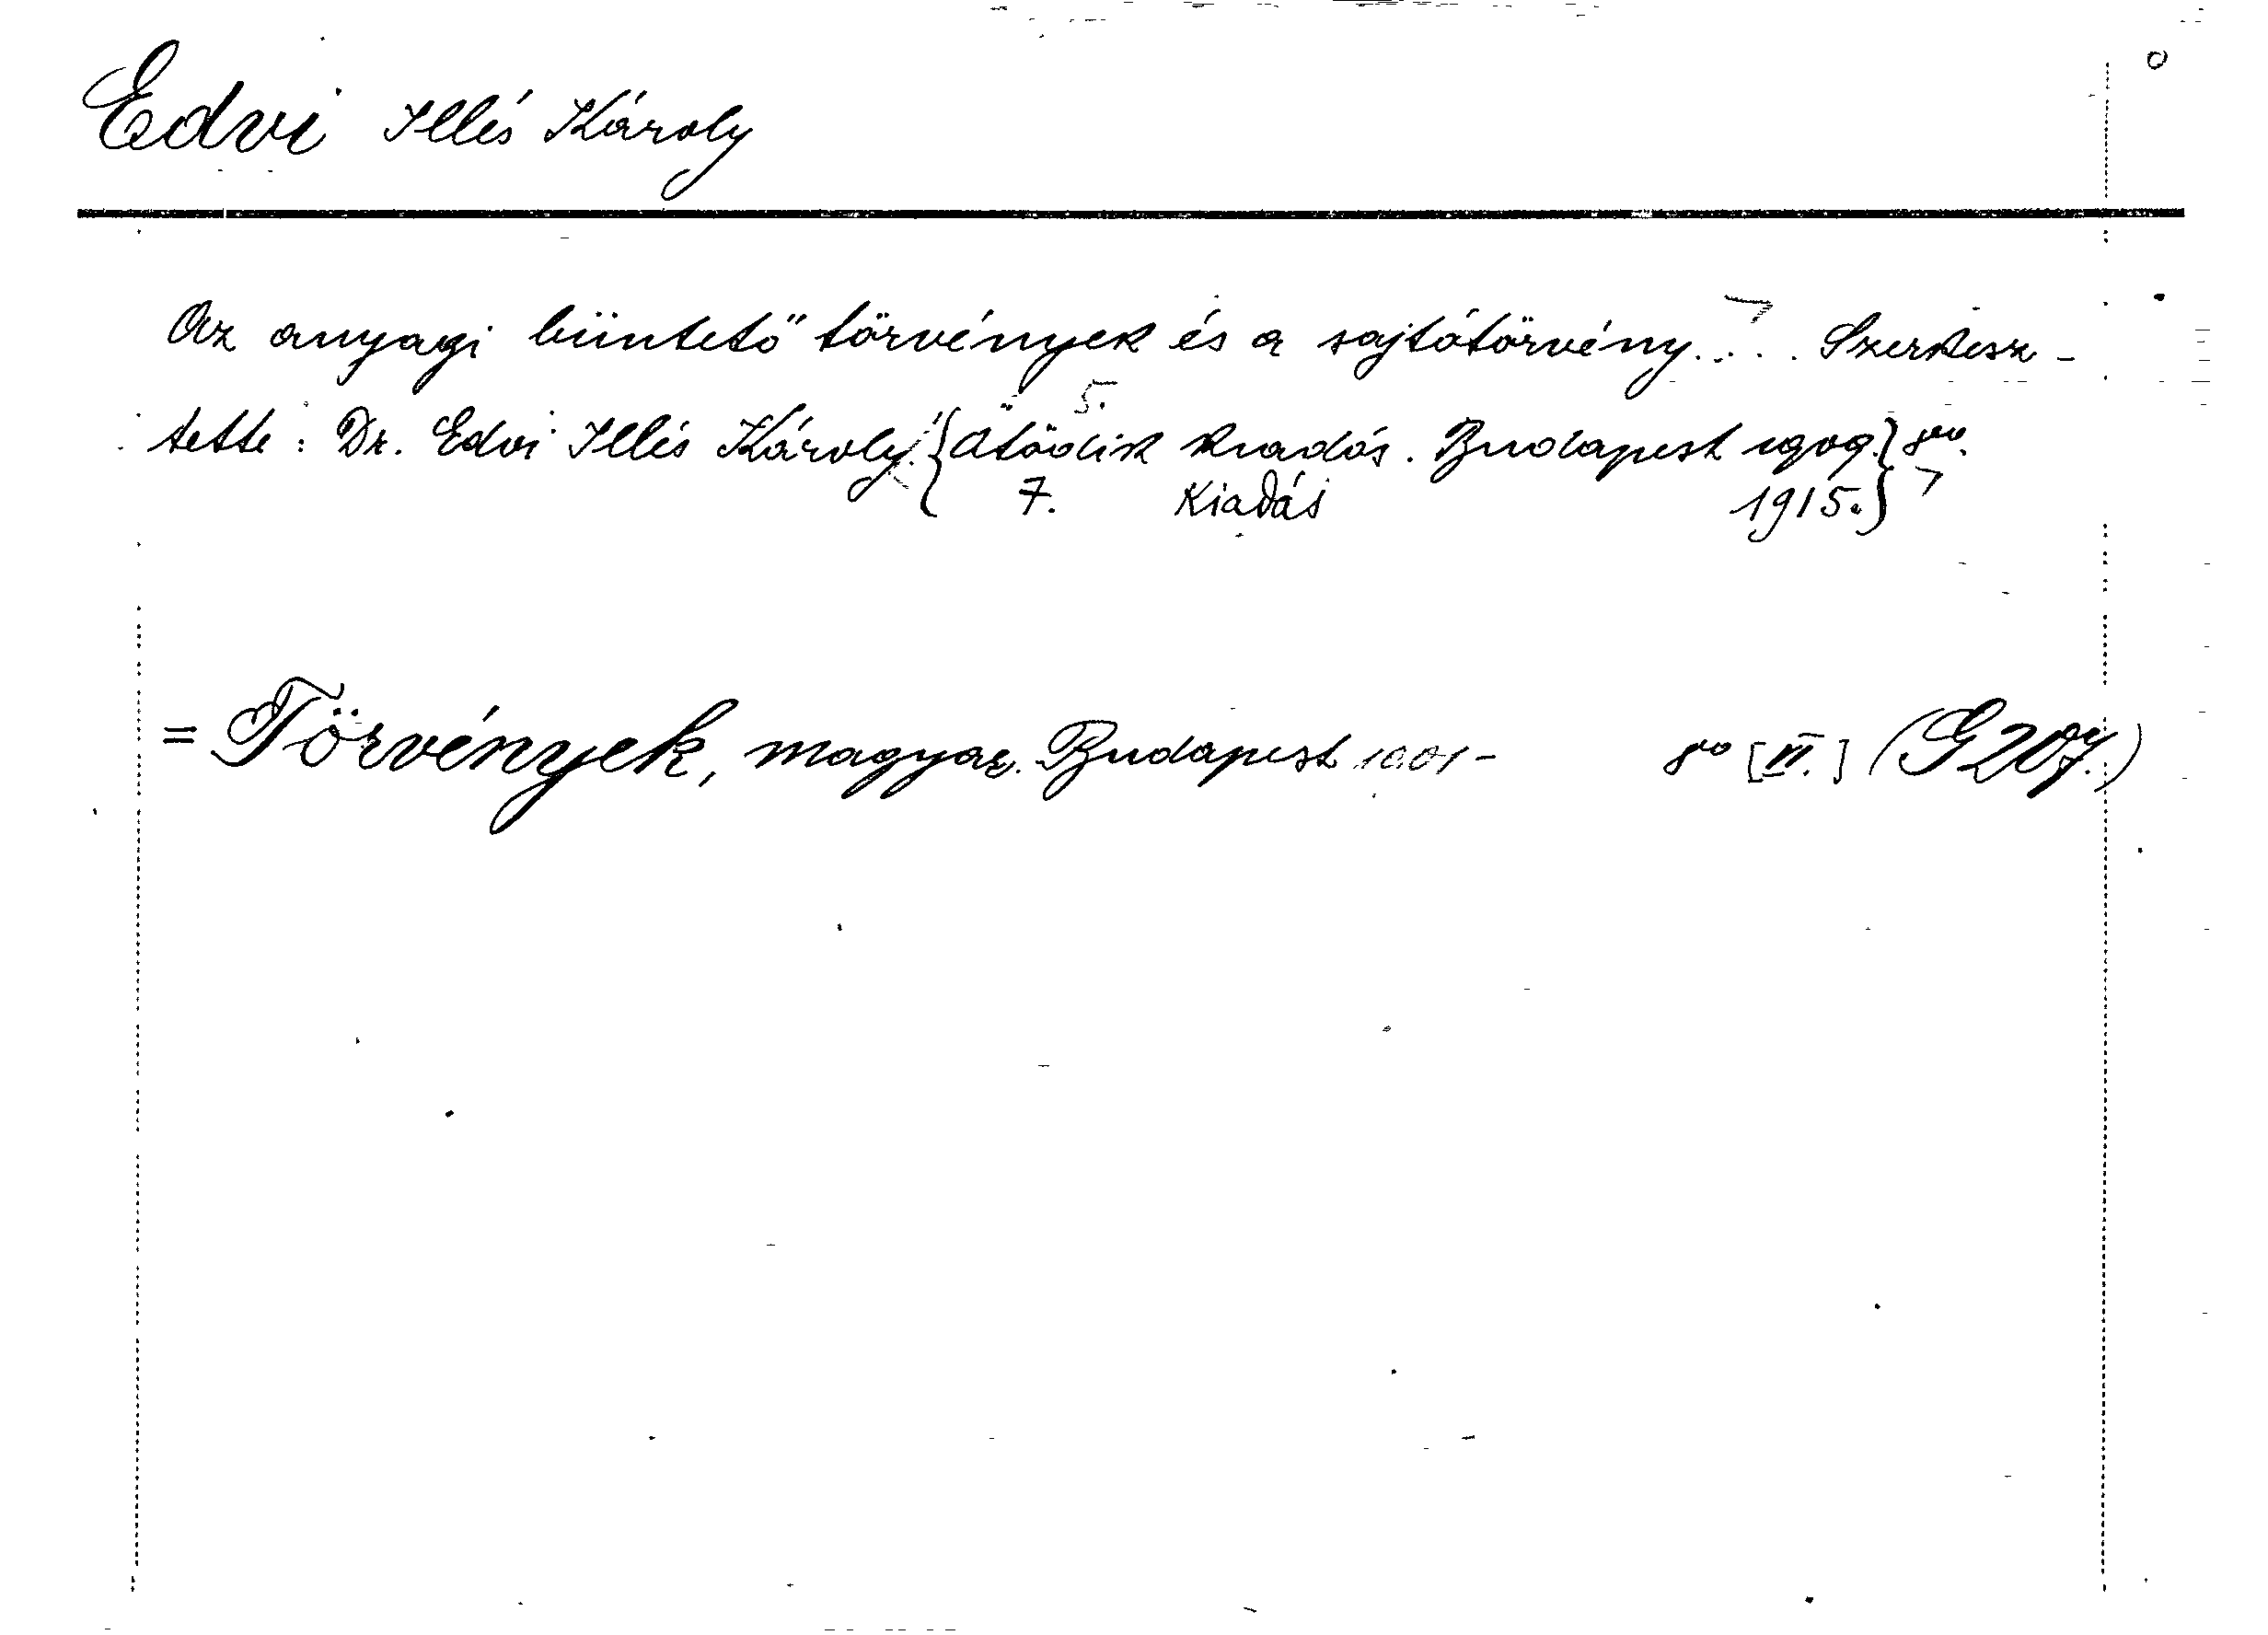 Edvi Illés Károly
Az anyagi büntető törvények és a sajtótörvény.... Szerkesz-
5.
tette: Dr. Edvi Illés Károly. { Ötödik kiadás. Budapest 1909. } 8vo.
7. Kiadás 1915. }
= Törvények, magyar. Budapest 1901- 8vo [VI.] (G 207.)